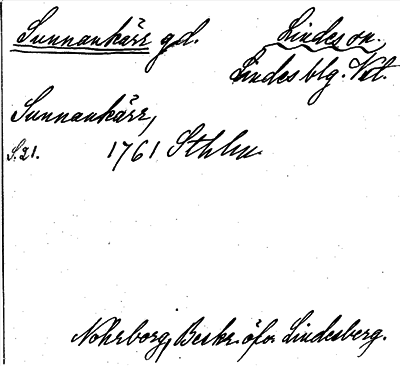 Sunnankärr gd. Lindes sn.
Lindesblg. Vstl.
Sunnankärr,
S. 21. 1761 Sthlm
Nohrborg, Beskr. öfver Lindesberg.